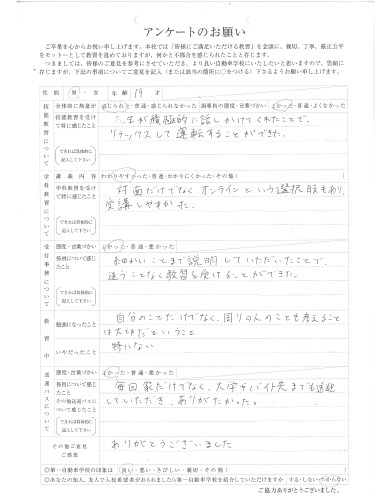 アンケートのお願い
ご卒業を心からお祝い申し上げます。本校では「皆様にご満足いただける教習」を念頭に、親切、丁寧、厳正公平
をモットーとして教習を進めておりますが、何かと不都合を感じられたことと存じます。
つきましては、皆様のご意見を参考にさせていただき、より良い自動車学校にいたしたいと思いますので、忌憚に
存じますが、下記の事項についてご意見記入（または該当の箇所に〇をつける）下さるようお願い申し上げます。
性別 男・女 年齢 19才
技能教習について
全体的に熱意が 感じられた・普通・感じられなかった 指導員の態度・言葉づかい よかった・普通・よくなかった
技能教習を受けて特に感じたこと
できれば具体的に記入して下さい
先生が積極的に話しかけてくれたことで、
リラックスして運転することができた。
学科教習について
講義内容 わかりやすかった・普通・わかりにくかった・その他（ ）
学科教習を受けて特に感じたこと
できれば具体的に記入して下さい
対面だけでなく、オンラインという選択肢もあり、
受講しやすかった。
受付事務について
態度・言葉づかい よかった・普通・悪かった
係員について感じたこと
できれば具体的に記入して下さい
細かいことまで説明していただいたことで、
迷うことなく教習を受けることができた。
教習中
勉強になったこと
自分のことだけでなく、周りの人のことも考えること
は大切だということ
いやだったこと
特にない
送迎バスについて
態度・言葉づかい よかった・普通・悪かった
係員について感じたこと
その他送迎バスについて感じたこと
できれば具体的に記入して下さい
毎回家だけでなく、大学やバイト先までも送迎
していただき、ありがたかった。
その他ご意見ご感想
ありがとうございました
◎第一自動車学校の印象は（良い・悪い・きびしい・親切・その他（ ）
◎あなたの知人、友人で入校希望者がおられましたら第一自動車学校を紹介していただけますか する・しない・わからない
ご協力ありがとうございました。